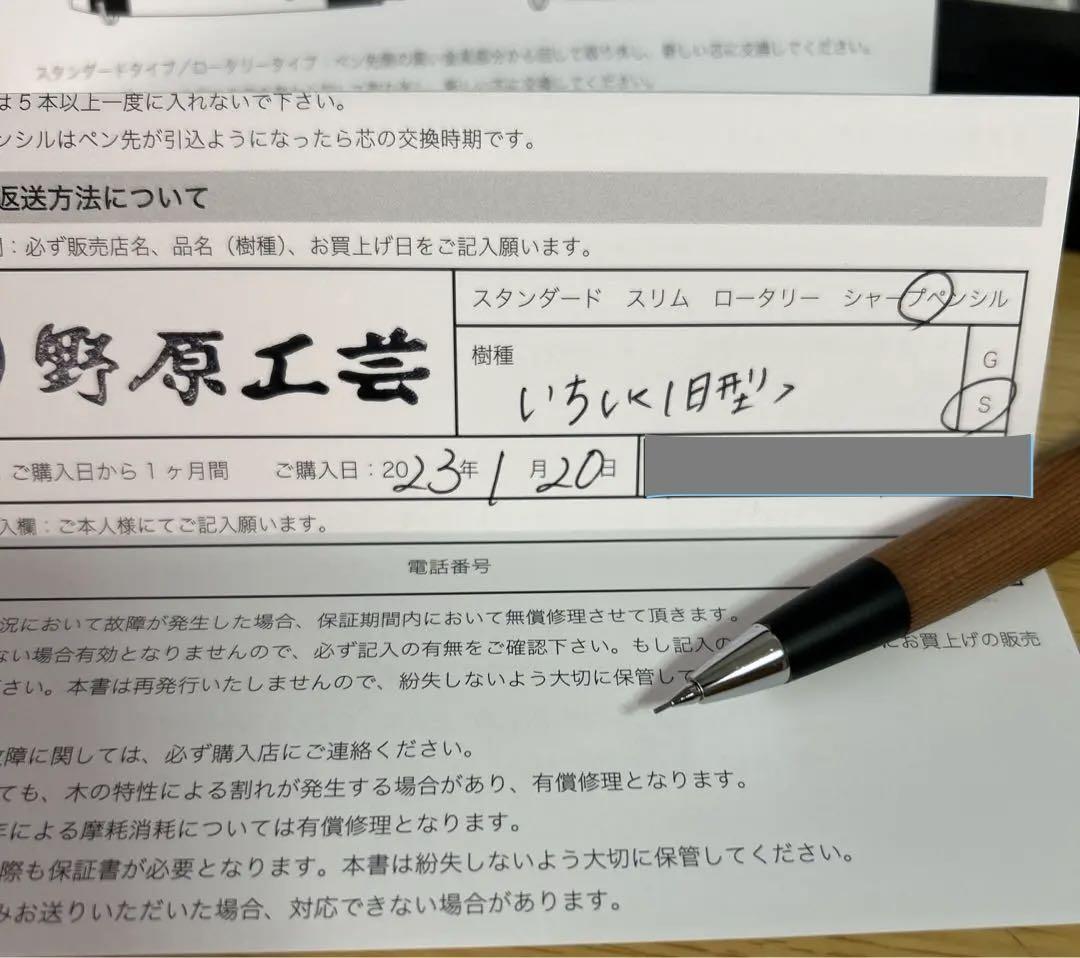 スタンダードタイプ／ロータリータイプ ペン先側の黒い金属部分から回して取り外し、新しい芯に交換してください。
は５本以上一度に入れないで下さい。
ンシルはペン先が引込ようになったら芯の交換時期です。
返送方法について
：必ず販売店名、品名（樹種）、お買上げ日をご記入願います。
野原工芸
スタンダード スリム ロータリー シャープペンシル
樹種
G
S
ご購入日から１ヶ月間 ご購入日：2023年1月20日
入欄：ご本人様にてご記入願います。
電話番号
況において故障が発生した場合、保証期間内において無償修理させて頂きます。
ない場合有効となりませんので、必ず記入の有無をご確認下さい。もし記入の にお買上げの販売
さい。本書は再発行いたしませんので、紛失しないよう大切に保管して
障に関しては、必ず購入店にご連絡ください。
ても、木の特性による割れが発生する場合があり、有償修理となります。
による摩耗消耗については有償修理となります。
際も保証書が必要となります。本書は紛失しないよう大切に保管してください。
みお送りいただいた場合、対応できない場合があります。